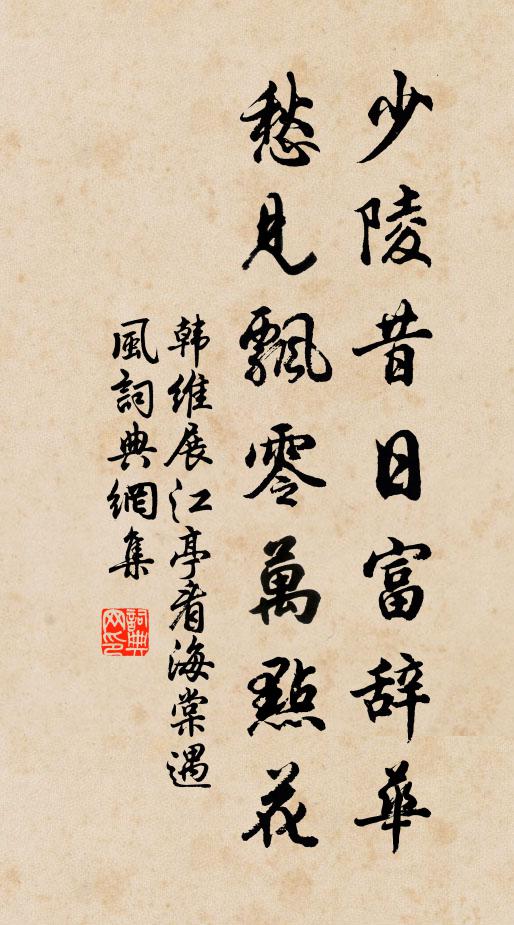 少陵昔日富辞華
愁見飄零萬點花
韩維展江亭看海棠遇
風詞典網集
詞典
网印